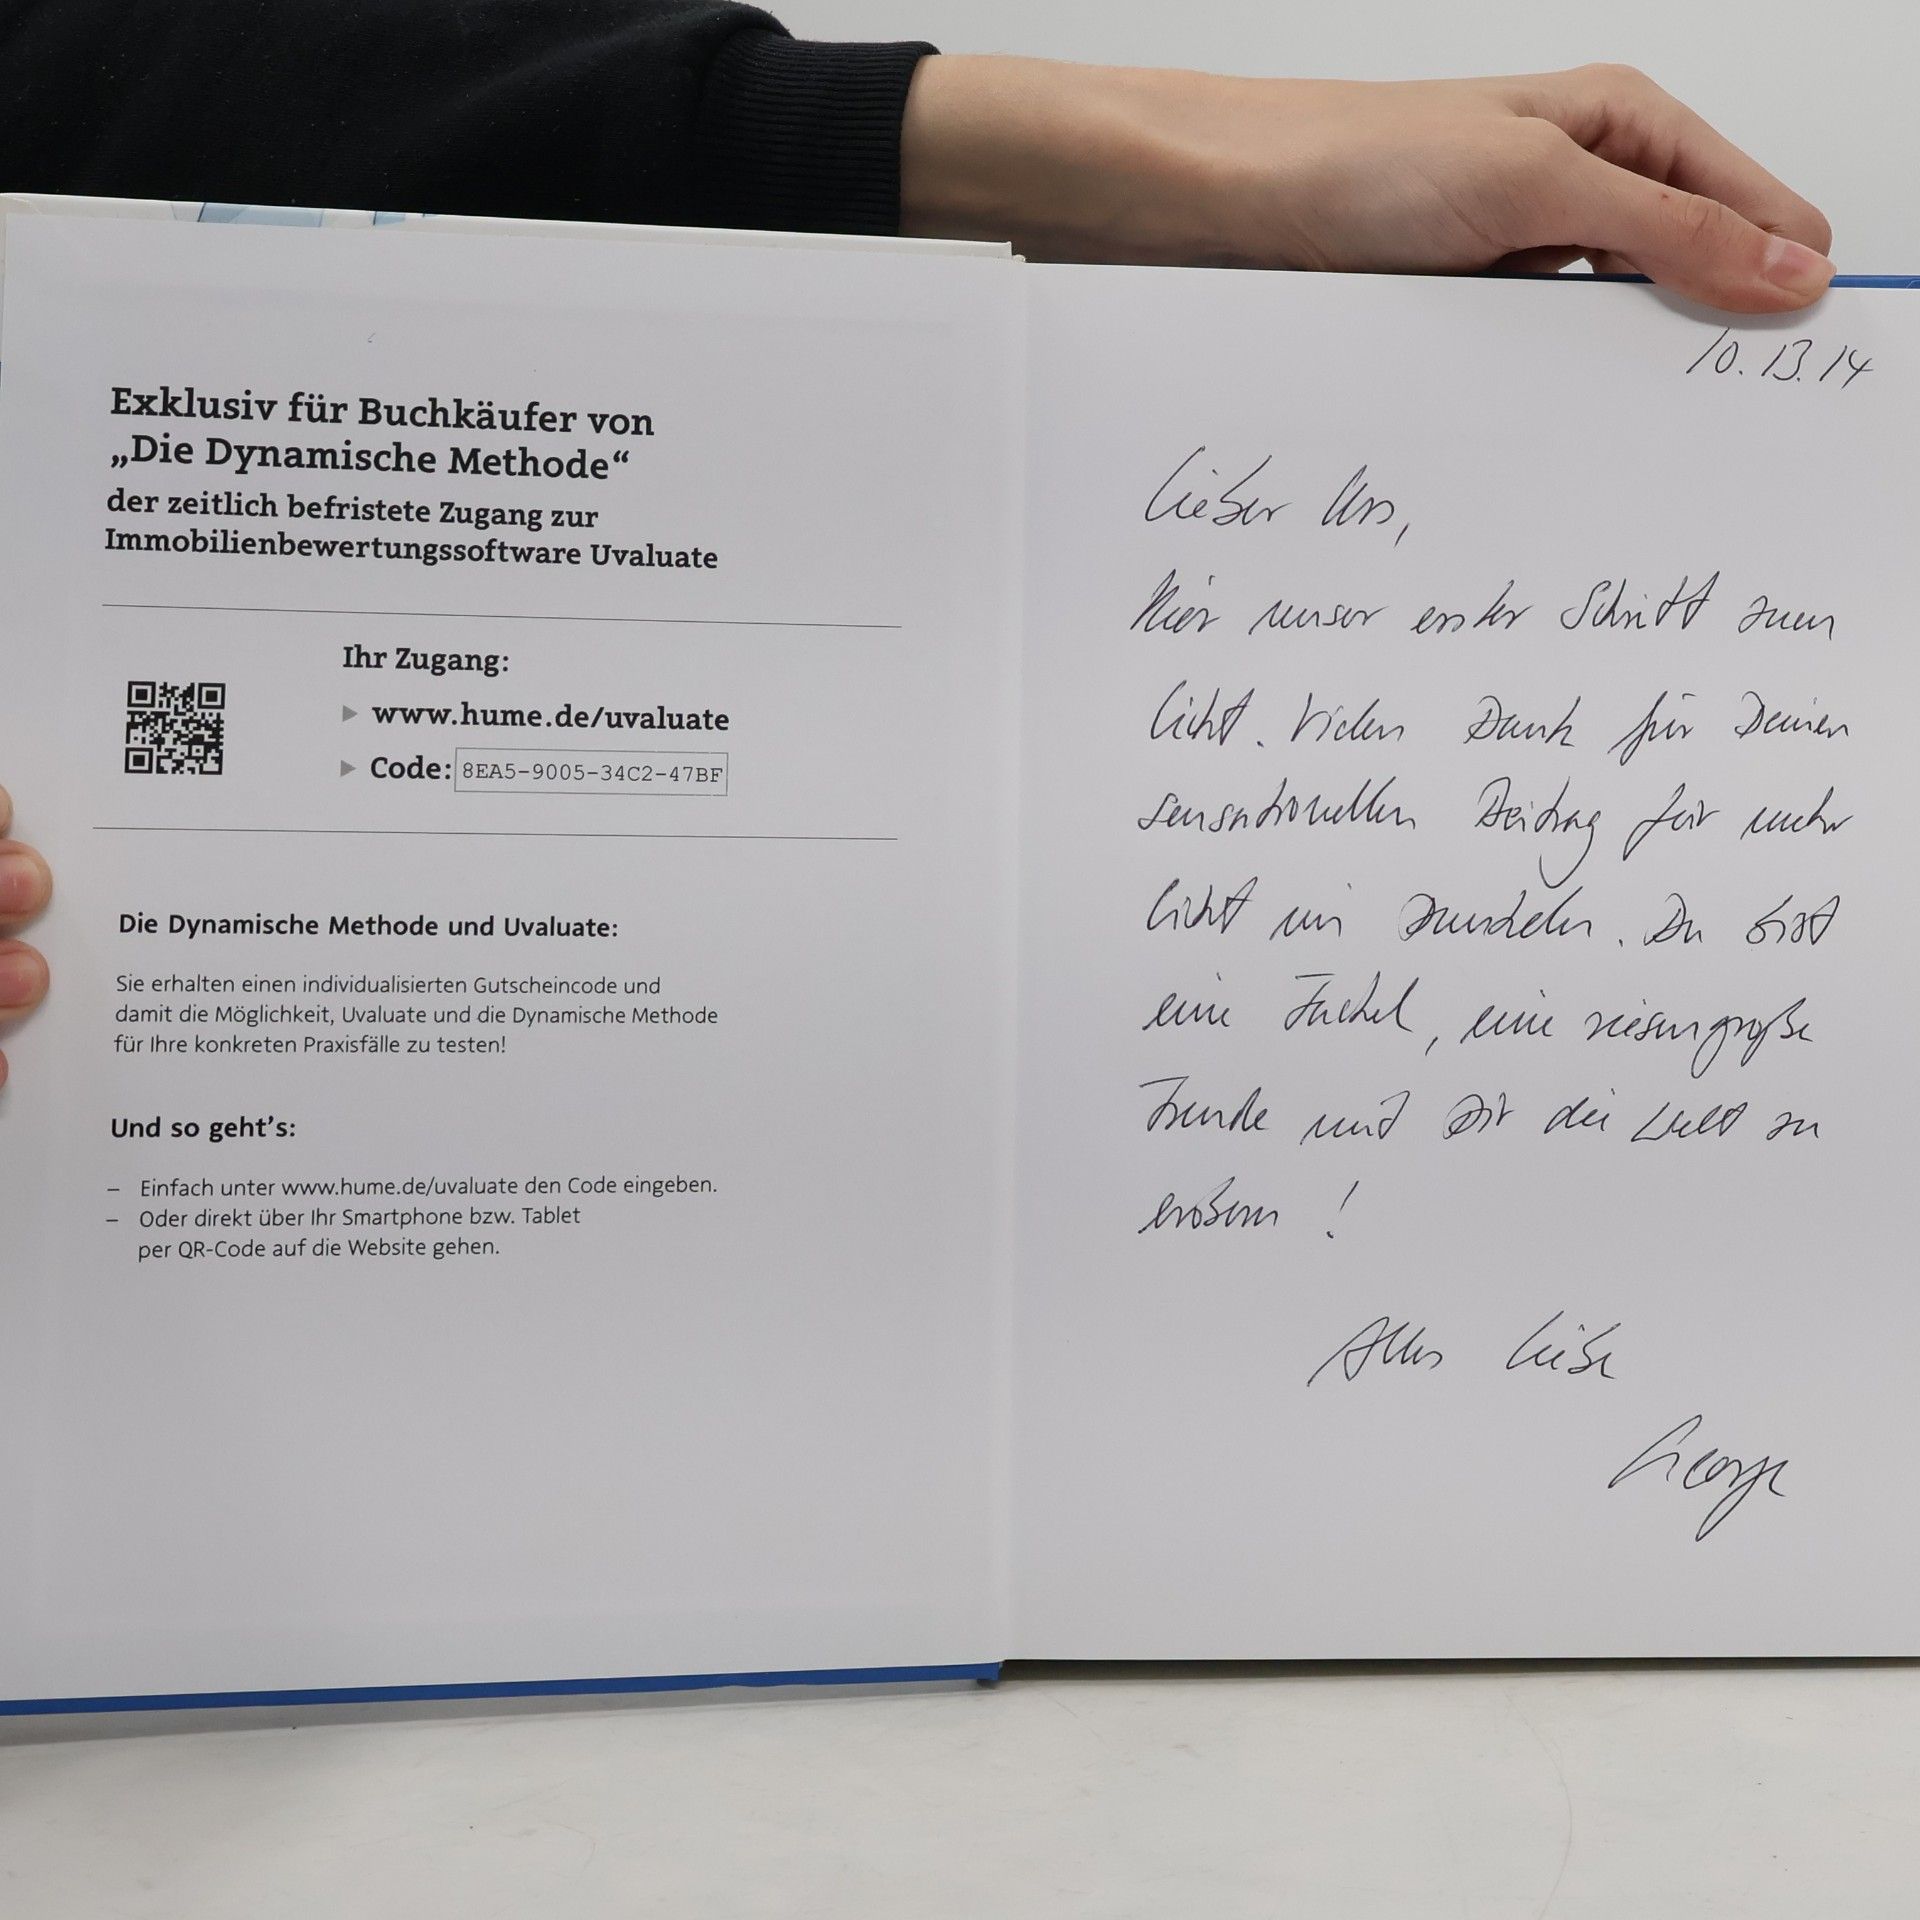 Exklusiv für Buchkäufer von
„Die Dynamische Methode“
der zeitlich befristete Zugang zur
Immobilienbewertungssoftware Uvaluate
Ihr Zugang:
www.hume.de/uvaluate
Code: 8EA5-9005-34C2-47BF
Die Dynamische Methode und Uvaluate:
Sie erhalten einen individualisierten Gutscheincode und
damit die Möglichkeit, Uvaluate und die Dynamische Methode
für Ihre konkreten Praxisfälle zu testen!
Und so geht’s:
– Einfach unter www.hume.de/uvaluate den Code eingeben.
– Oder direkt über Ihr Smartphone bzw. Tablet
per QR-Code auf die Website gehen.
10.13.14
Lieber Urs,
hier unser erster Schritt zum
Licht. Vielen Dank für Deinen
sensationellen Beitrag für mehr
Licht im Dunkeln. Du bist
eine Fackel, eine riesengroße
Freude und Dir die Welt zu
erobern!
Alles Liebe
George